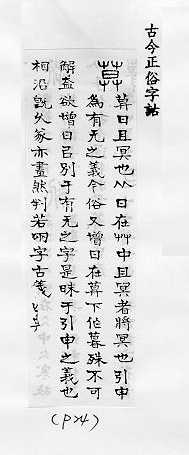 古今正俗字詁
莫
莫日且冥也从日在茻中且冥者將冥也引申
為有无之義今俗又增日在莫下作暮殊不可
解蓋欲增日㠯別于有无之字是昧于引申之義也
相沿既久篆亦畫然判若兩字古箋
(P24)